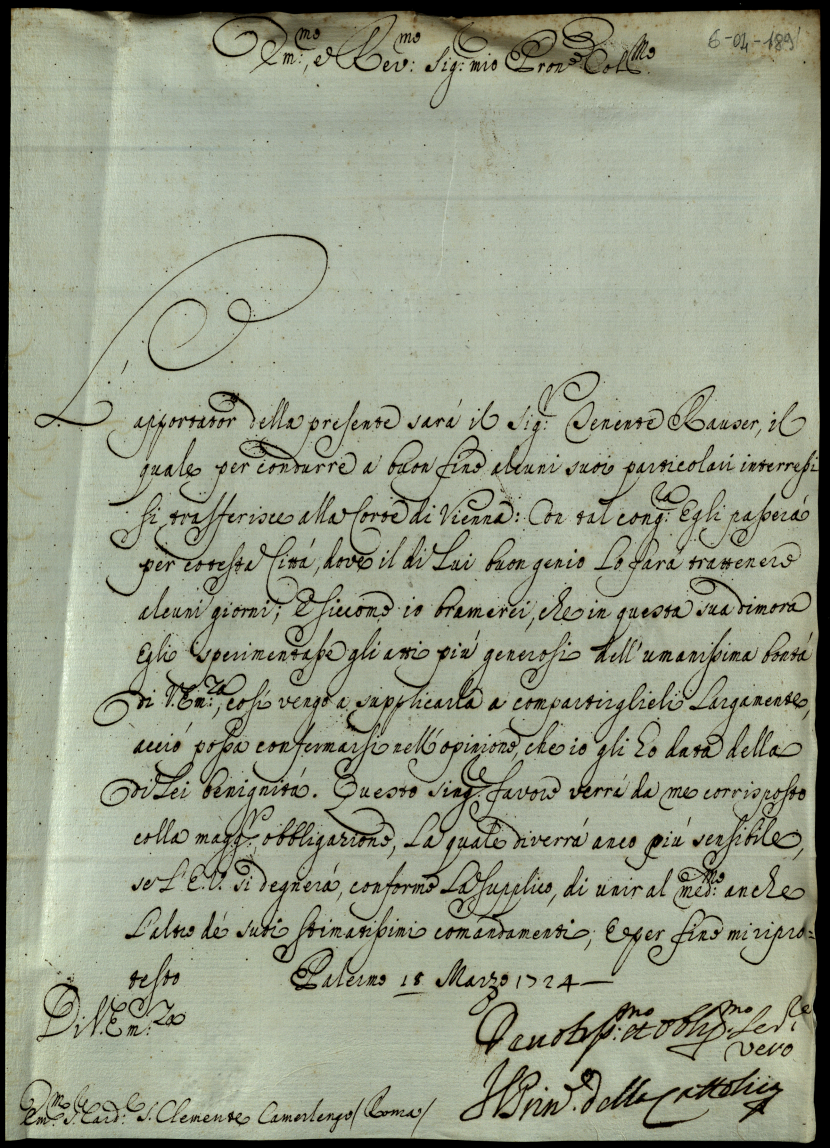 6-04-189
Em.mo, e Rev.mo Sig: mio Pron.e Coll.mo
L'apportator della presente sará il Sig.r Tenente Rauser, il
quale per condurre a buon fine alcuni suoi particolari interressi
si trasferisce alla Corte di Vienna: Con tal cong.ra Egli passerá
per cotesta Cittá, dove il di Lui buon genio Lo fará trattenere
alcuni giorni; E siccome io bramerei, che in questa sua dimora
Egli sperimentasse gli atti piú generosi dell'umanissima bontá
di V. Em.za, cosí vengo a supplicarla a compartirglieli Largamente,
acció possa confermarsi nell'opinione, che io gli hó data della
di Lei benignitá. Questo sing.le favore verrá da me corrisposto
colla magg.r obbligazione, La quale diverrá anco piú sensibile,
se L'E.V. si degnerá, conforme La supplico, di unir al med.mo anche
L'altro dé suoi stimatissimi comandamenti; E per fine mi ripro=
testo Palermo 18 Marzo 1724
Di V. Em.za
Devotiss.mo et Oblig.mo Ser.re
vero
Il Prin.e della Cattolica
Em.mo S. Card.e S. Clemente Camerlengo (Roma)